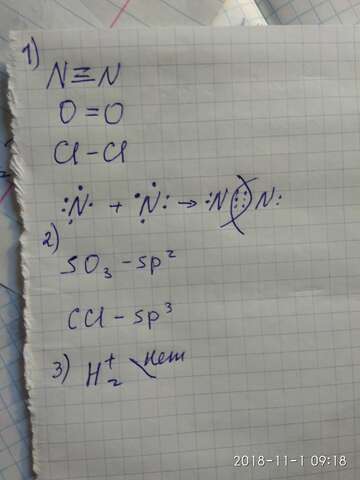 1)
N≡N
O=O
Cl-Cl
:N· + ·N: → :N(:::)N:
2)
SO₃ - sp²
CCl - sp³
3) H₂⁺ нет
2018-11-1 09:18